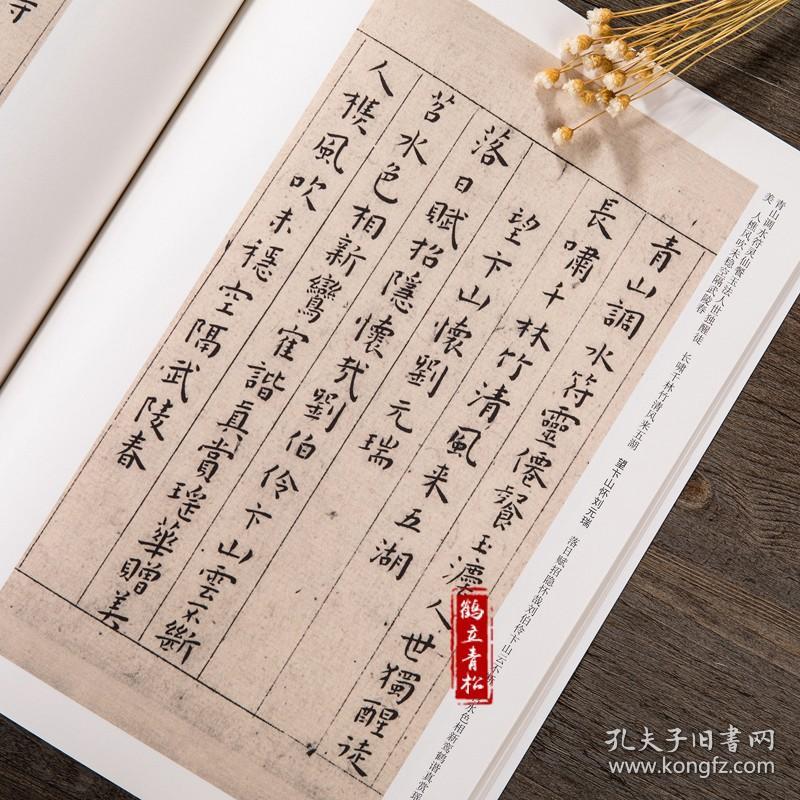 青山調水符靈僊餐玉灋人世獨醒徒
長嘯千林竹清風来五湖
望卞山懷劉元瑞
落日賦招隱懷哉劉伯伶卞山雲不斷
苕水色相新鸞隺諧真賞瑤華贈美
人樵風吹未穩空隔武陵春
青山调水符灵仙餐玉法人世独醒徒 长啸千林竹清风来五湖 望卞山怀刘元瑞 落日赋招隐怀哉刘伯伶卞山云不断 水色相新莺鹤谐真赏瑶
美人樵风吹未稳空隔武陵春
鹤立青松
孔夫子旧书网
www.kongfz.com